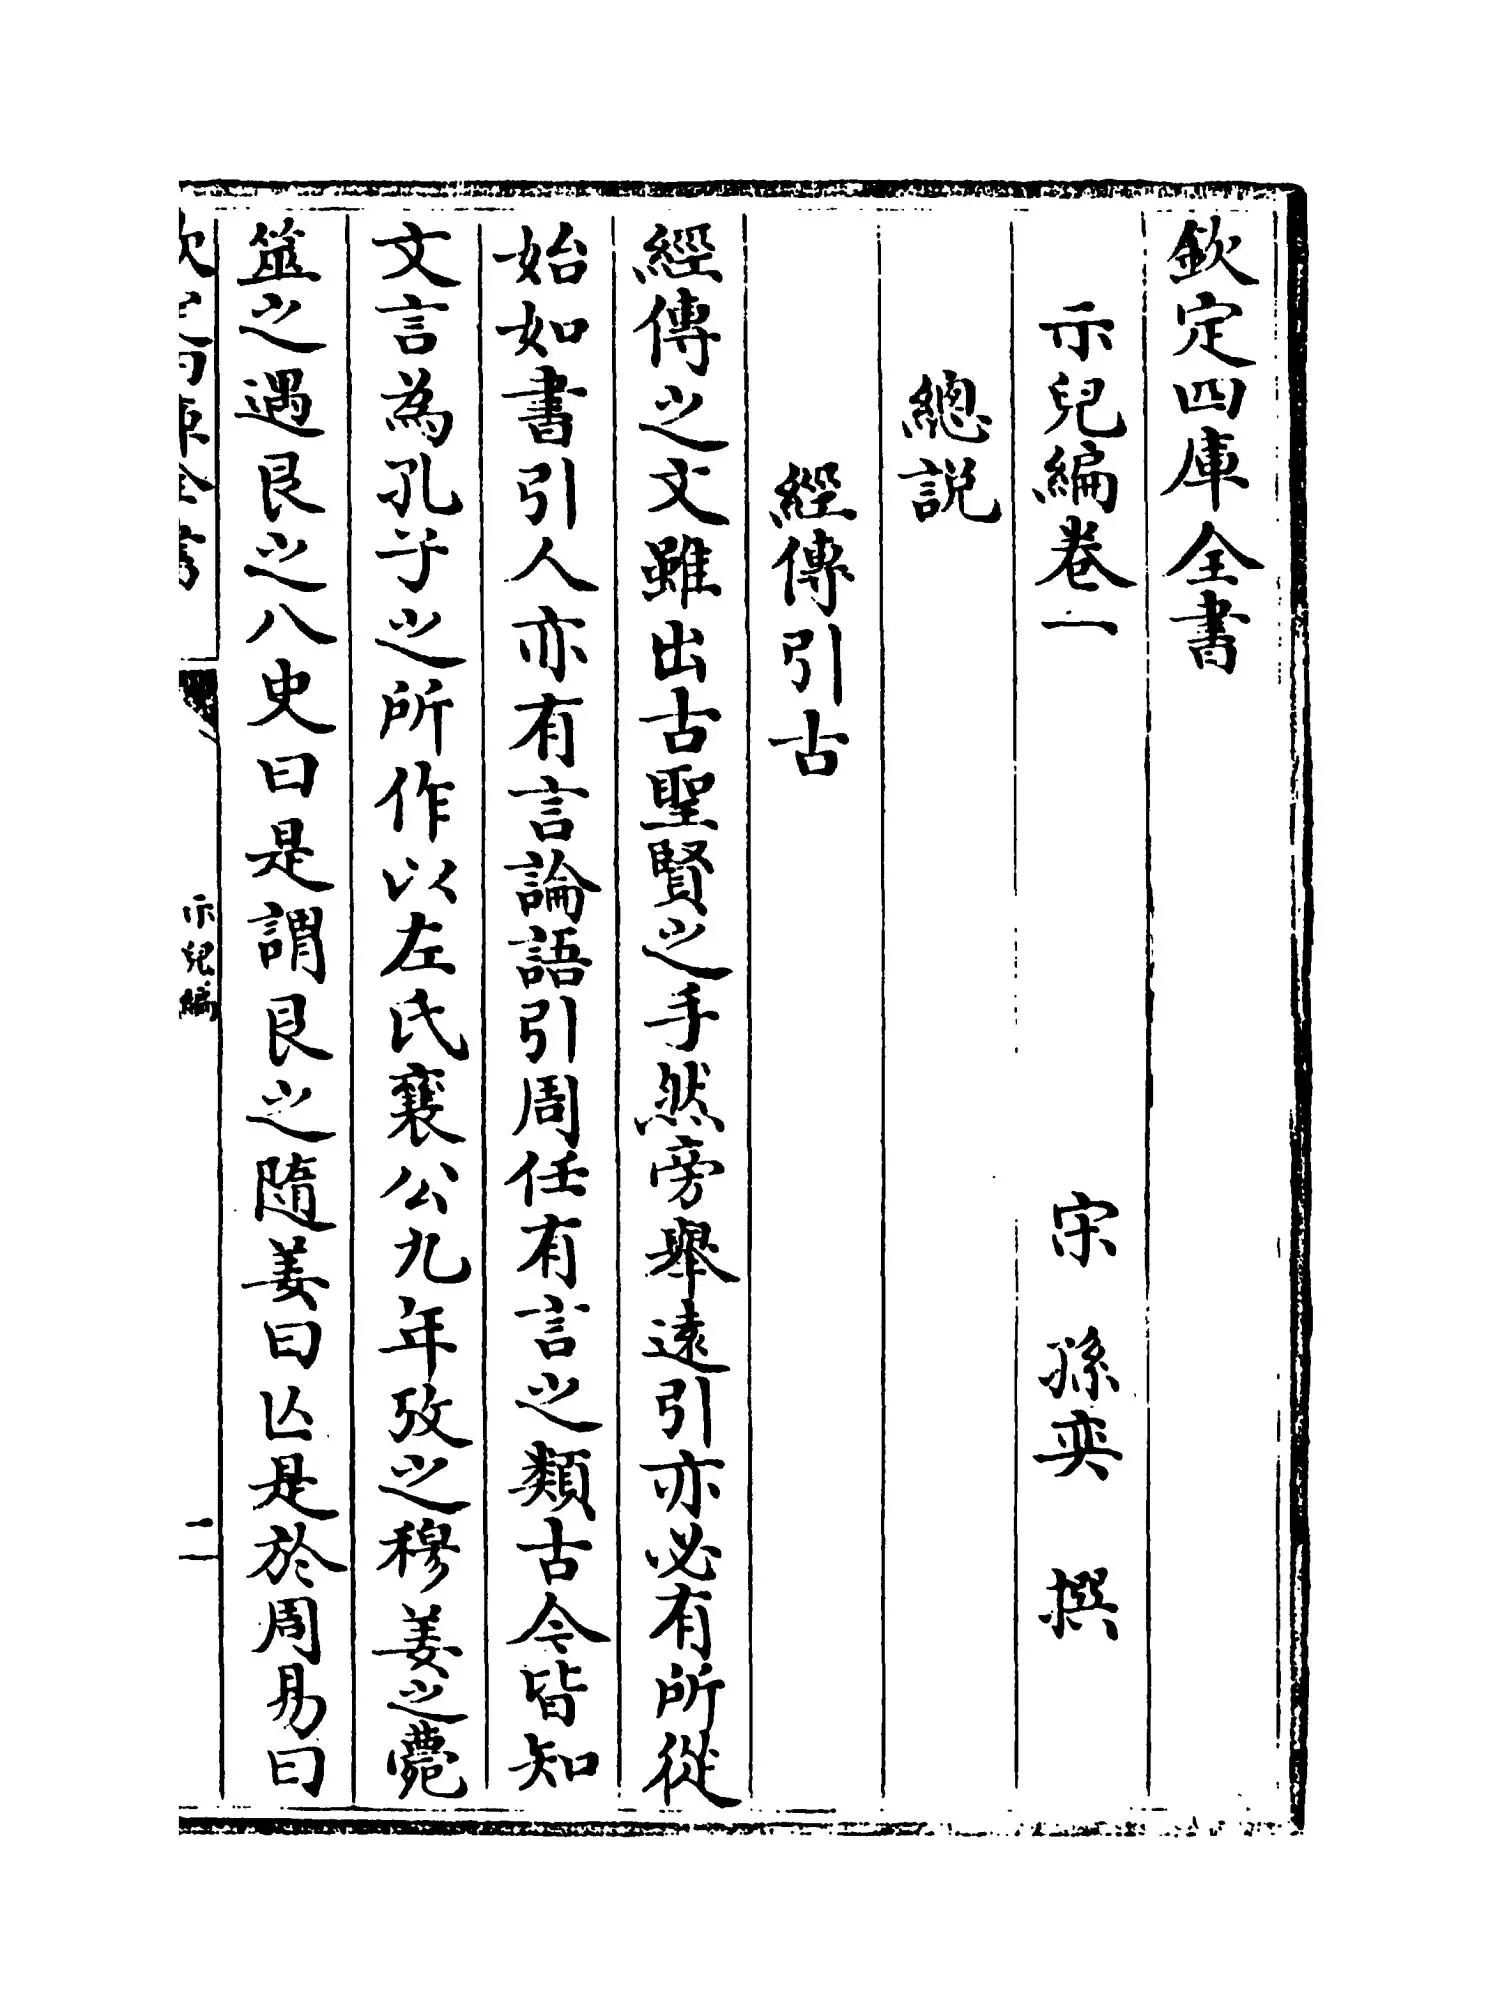 欽定四庫全書
示兒編卷一 宋 孫奕 撰
總說
經傳引古
經傳之文雖出古聖賢之手然旁舉遠引亦必有所從
始如書引人亦有言論語引周任有言之類古今皆知
文言為孔子之所作以左氏襄公九年攷之穆姜之薨
筮之遇艮之八史曰是謂艮之隨姜曰亾是於周易曰
欽定四庫全書
示兒編
二